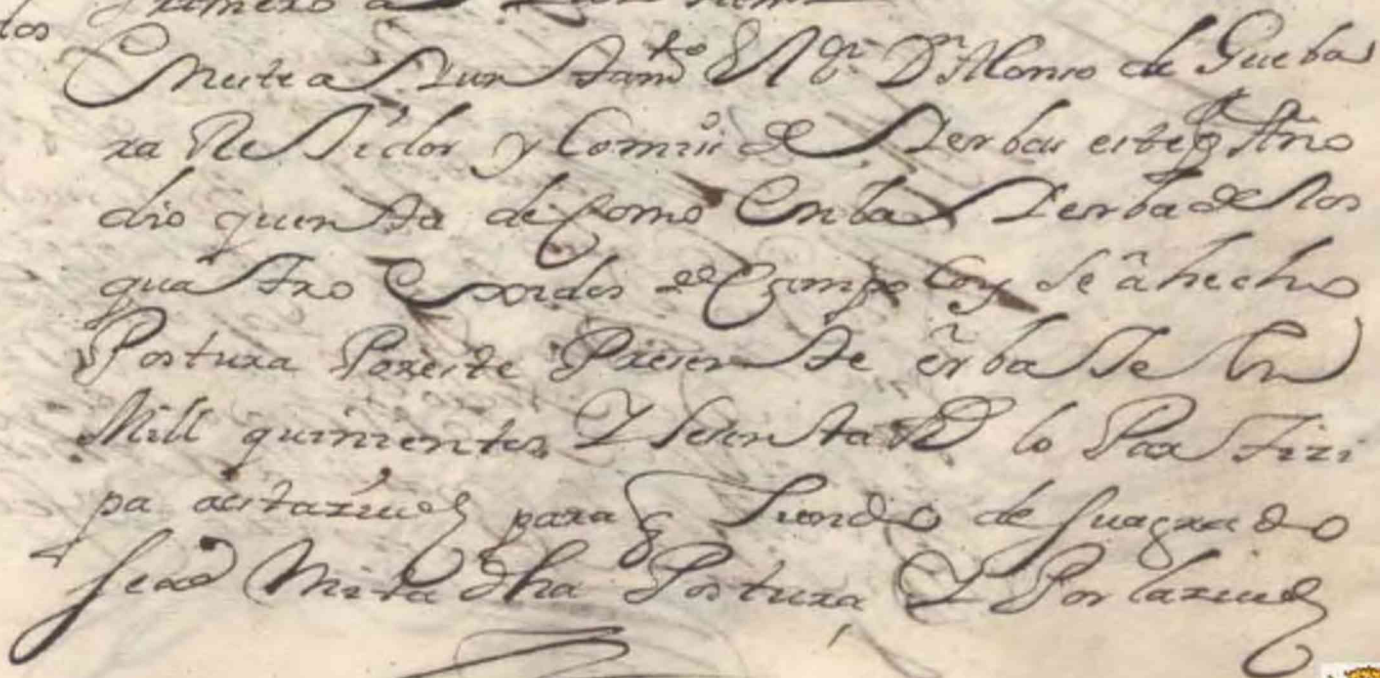 los primero a
En este aiuntamto el Sr Dn Alonso de Gueba
ra Rexidor y Comiso de Yerbas este Año
dio quenta de Como en la Yerba de los
quatro Exidos de Campo Coy se â hecho
Postura Por este Presente erbaxe en
Mill quinientos y sesenta Rs lo Partizi
pa a esta ziud para q siendo de su agrado
se admita dha Postura Y Por la ziud